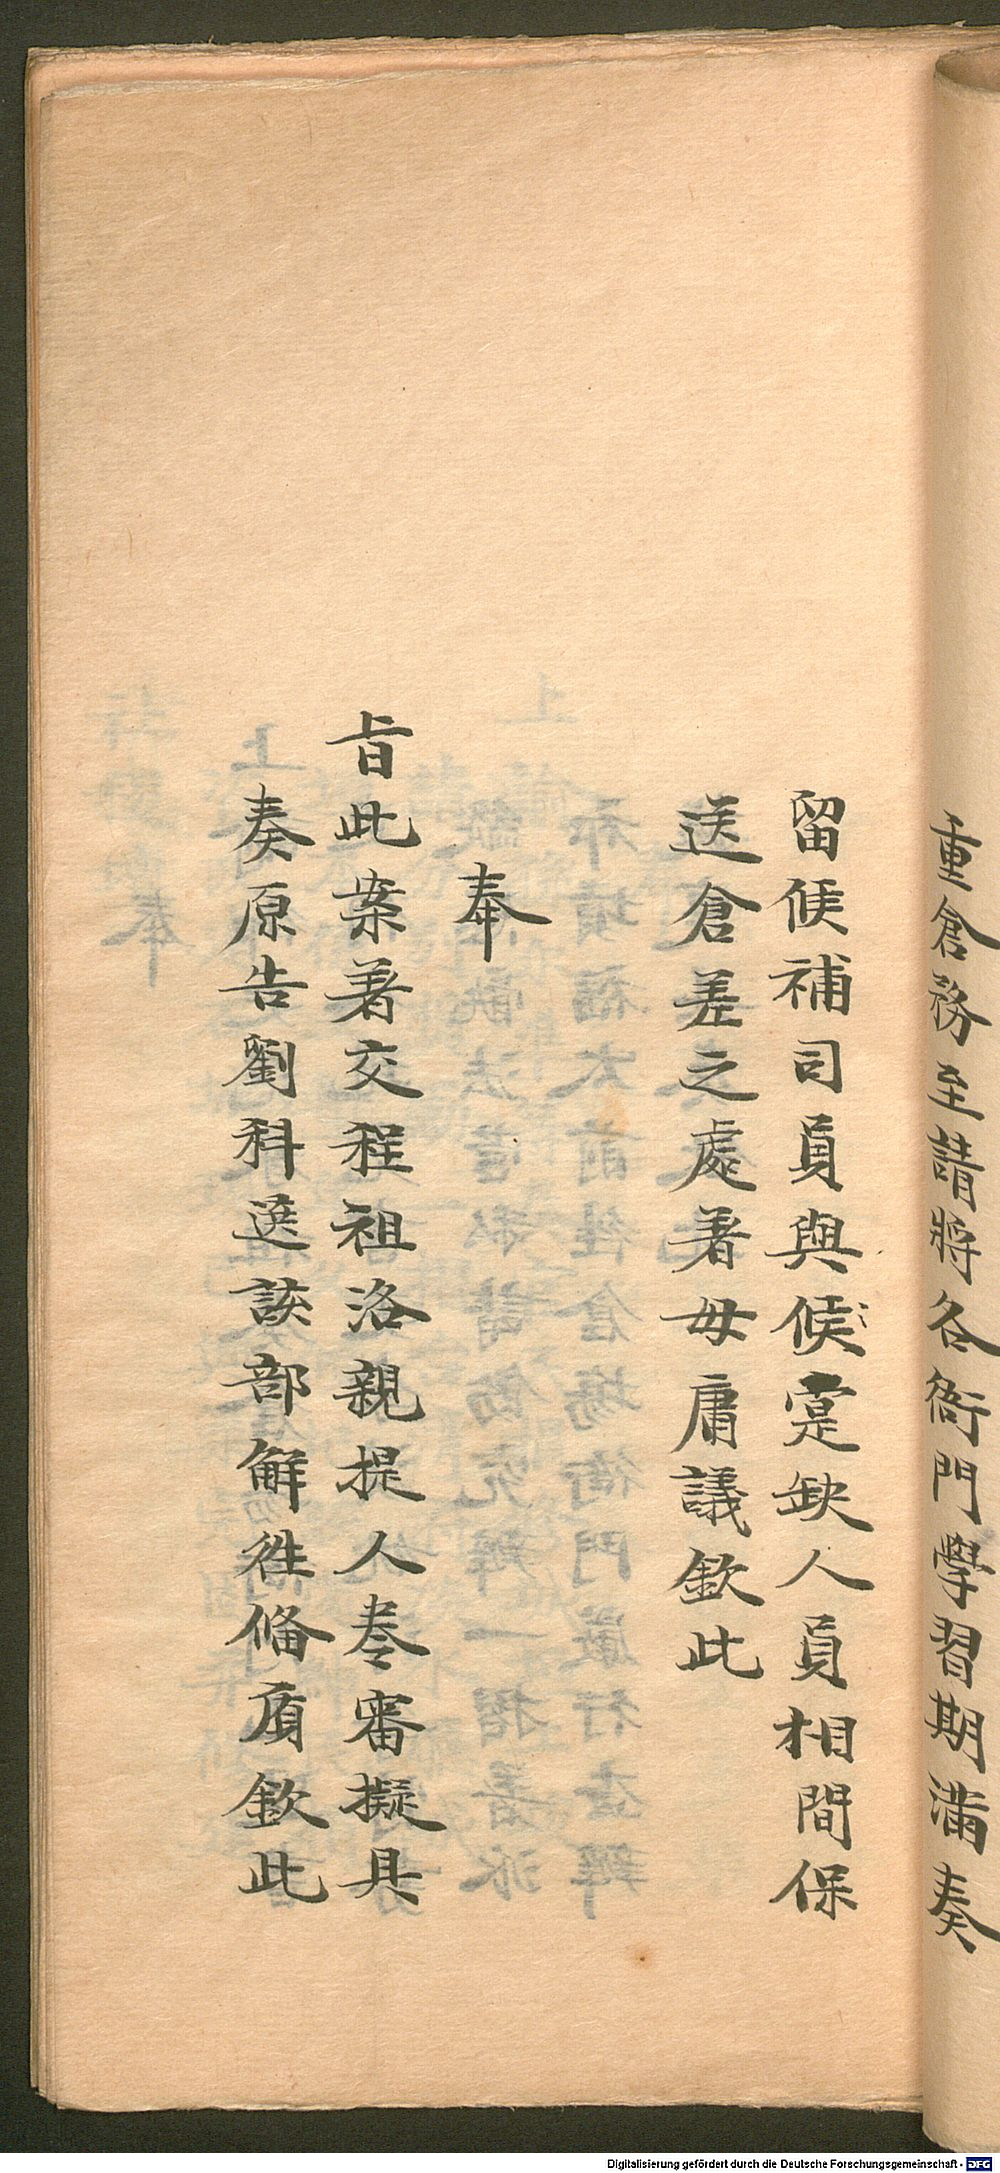 重倉務至請將各衙門學習期滿奏
留候補司員與候㝎缺人員相間保
送倉差之處著毋庸議欽此
奉
旨此案著交程祖洛親提人卷審擬具
奏原告劉科選該部解徃備質欽此
Digitalisierung gefördert durch die Deutsche Forschungsgemeinschaft - DFG